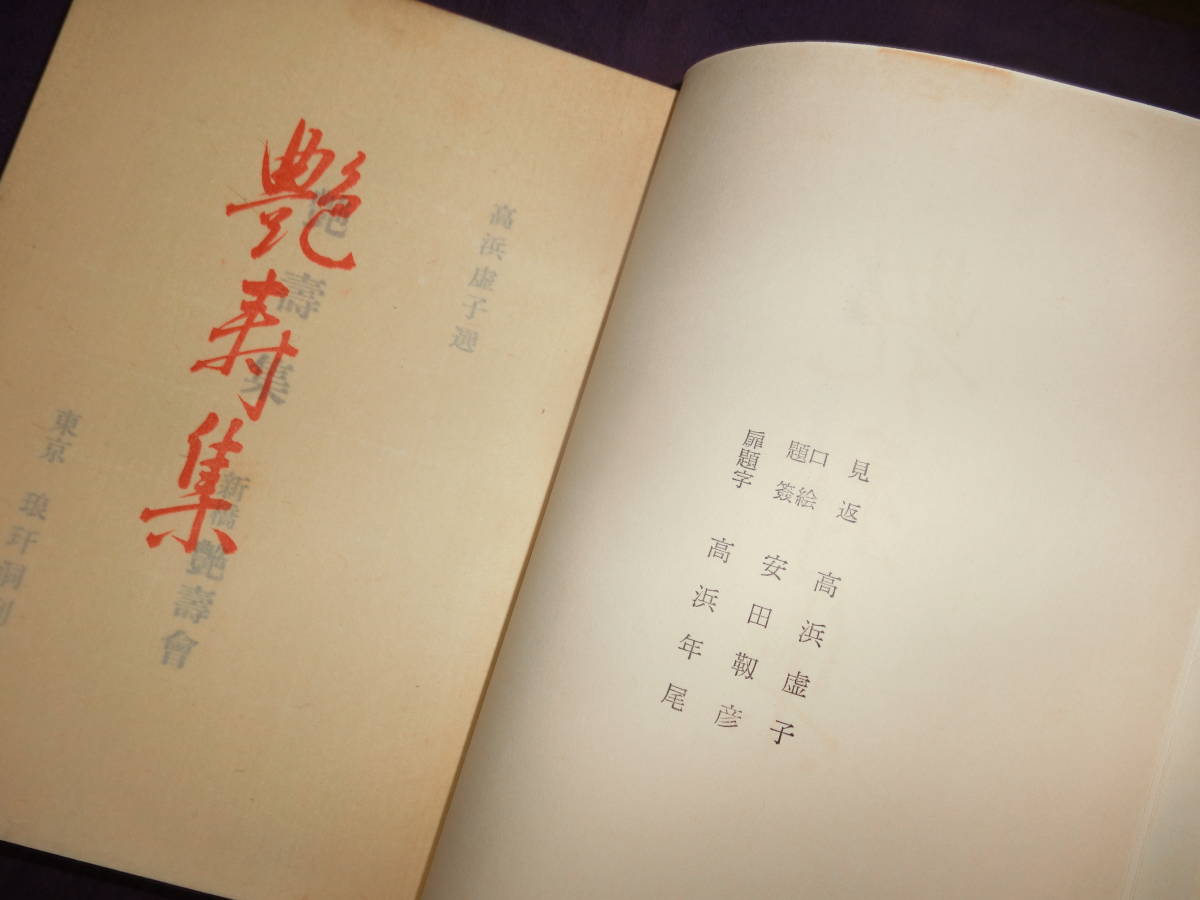 見返 高浜虚子
口絵
題簽 安田靱彦
扉題字 高浜年尾
高浜虚子選
艶壽集
艶寿集
新橋 艶壽會
東京 琅玕洞刊